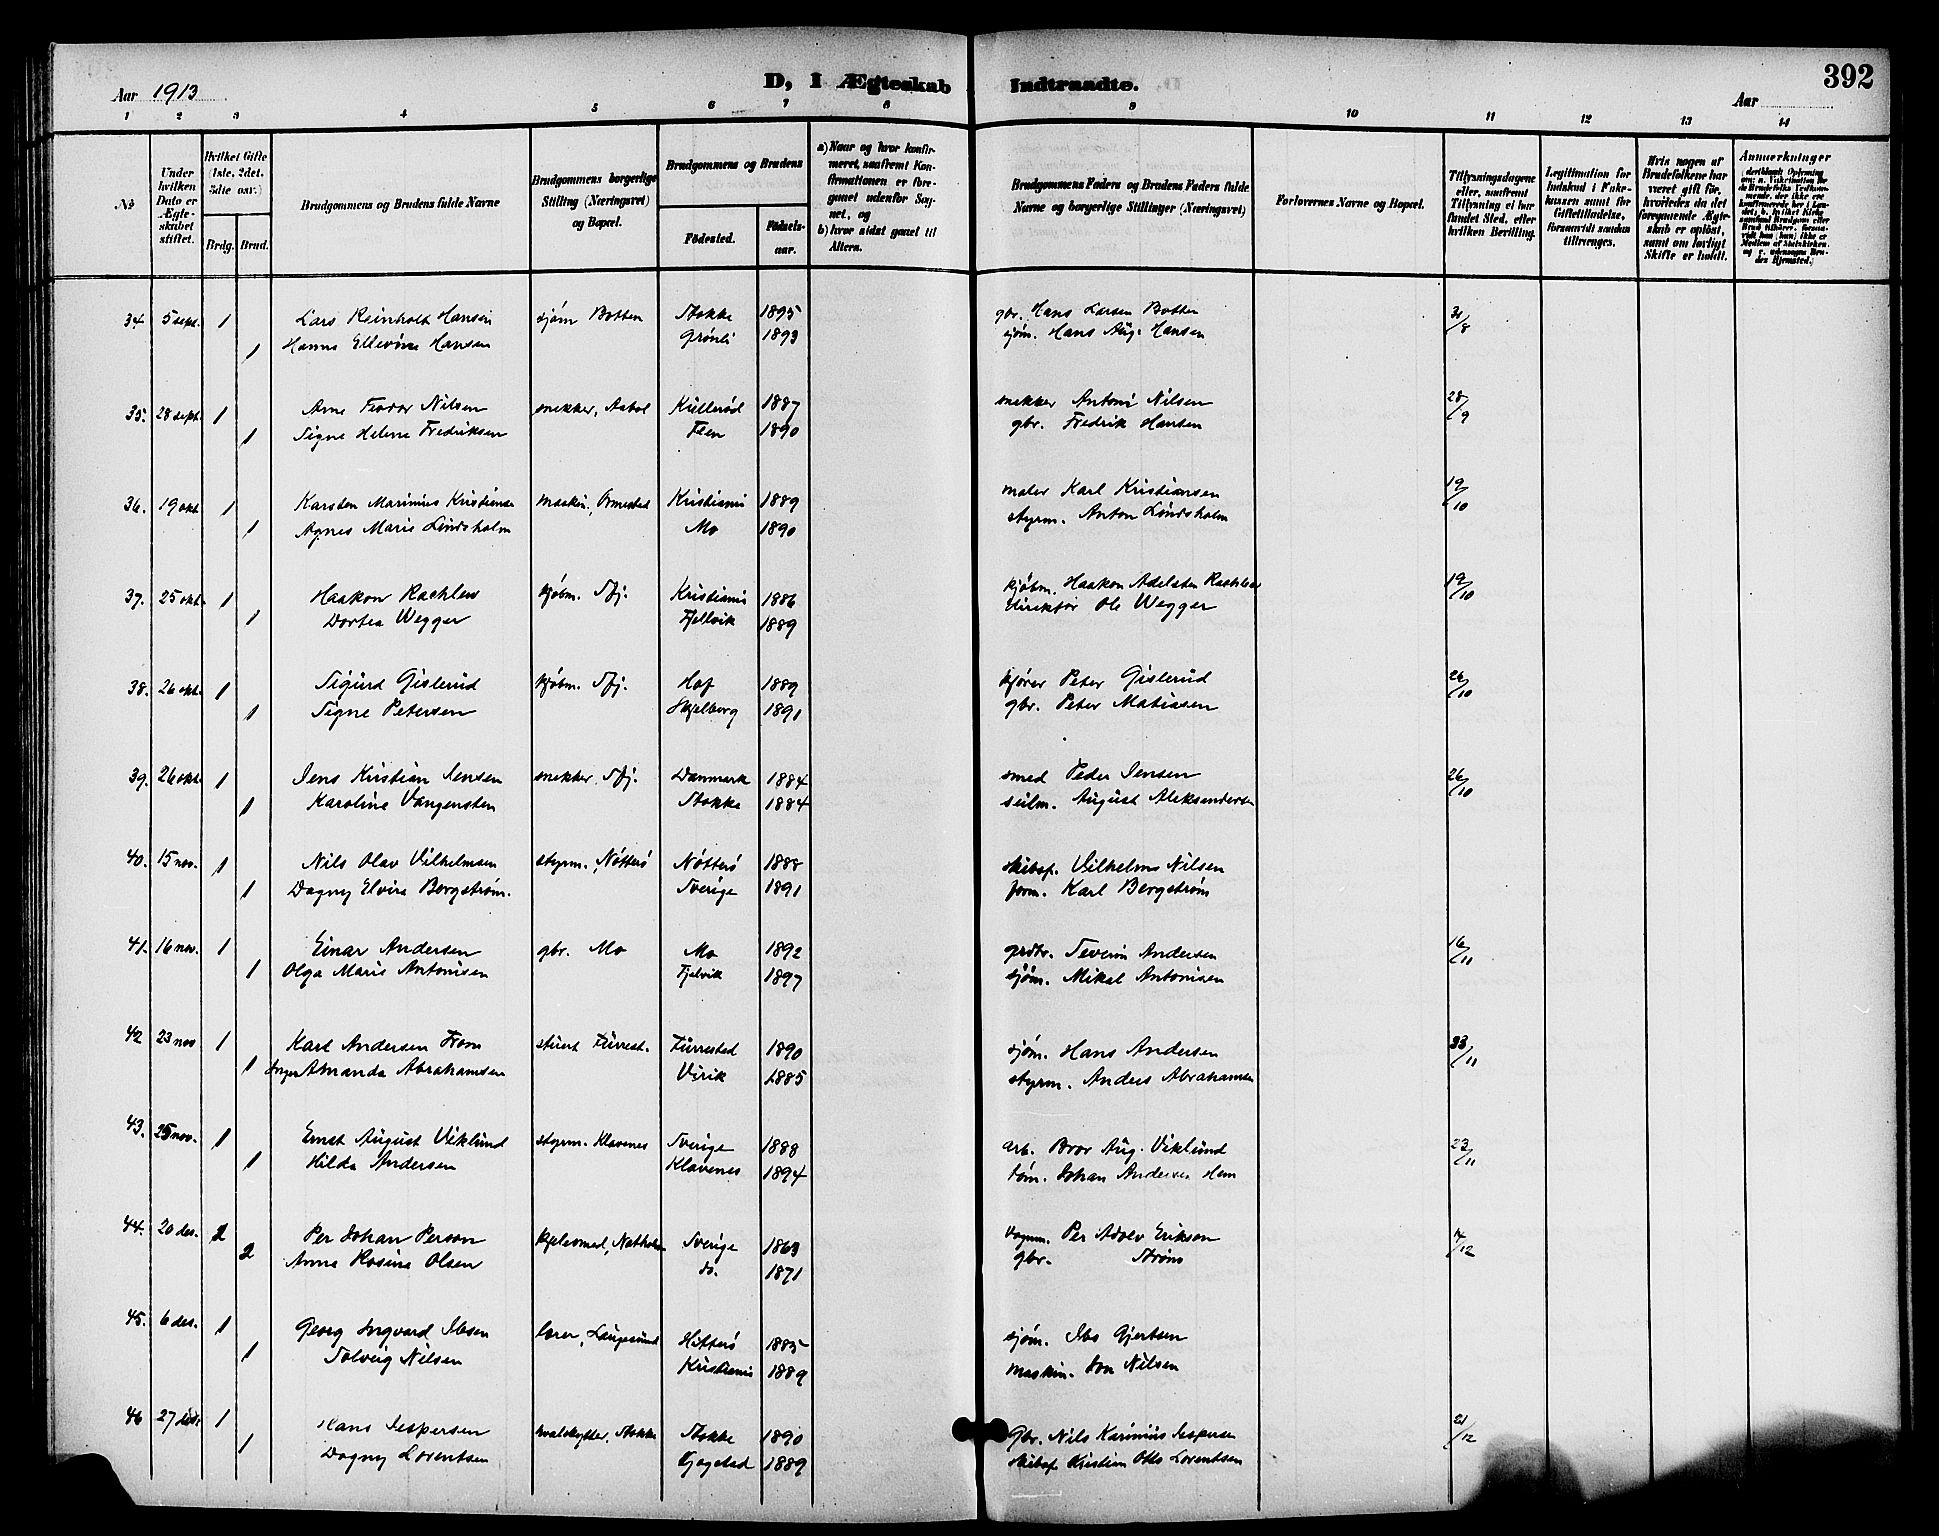 392
D, I Ægteskab Indtraadte.
Aar 1913 Aar
1 2 3 4 5 6 7 8 9 10 11 12 13 14
№
Under hvilken Dato er Ægteskabet stiftet.
Hvilket Gifte (1ste, 2det, 3die osv.)
Brdg. Brud.
Brudgommens og Brudens fulde Navne
Brudgommens borgerlige Stilling (Næringsvei) og Bopæl.
Brudgommens og Brudens
Fødested. Fødselsaar.
a) Naar og hvor konfirmeret, saafremt Konfirmationen er foregaaet udenfor Sognet, og
b) hvor sidst gaaet til Alters.
Brudgommens Faders og Brudens Faders fulde Navne og borgerlige Stillinger (Næringsvei)
Forlovernes Navne og Bopæl.
Tillysningsdagene eller, saafremt Tillysning ei har fundet Sted, efter hvilken Bevilling.
Legitimation for Indskud i Enkekassen samt for Giftetilladelse, forsaavidt saadan tiltrænges.
Hvis nogen af Brudefolkene har været gift før, hvorledes da det foregaaende Ægteskab er opløst, samt om lovligt Skifte er holdt.
Anmærkninger
34. 5 sept. 1 Lars Reinholt Hansen sjøm Botten Stokke 1895 gbr. Hans Larsen Botten 31/8
1 Hanna Ellevine Hansen Grønli 1893 sjøm. Hans Aug. Hansen
35. 28 sept. 1 Arne Feodor Nilsen snekker, Aabol Kullerød 1887 snekker Anton Nilsen 28/9
1 Signe Helene Fredriksen Feen 1890 gbr. Fredrik Hansen
36. 19 okt 1 Karsten Marinius Kristiansen maskin., Ormestad Kristiania 1889 maler Karl Kristiansen 19/10
1 Agnes Marie Lindsholm Mo 1890 styrm. Anton Lindsholm
37. 25 okt. 1 Haakon Rachlew kjøbm. Sfj. Kristiania 1886 kjøbm. Haakon Adelsten Rachlew 19/10
1 Dortea Wegger Fjellvik 1889 Direktør Ole Wegger
38. 26 okt. 1 Sigurd Gislerud kjøbm. Sfj. Hof 1889 kjører Peter Gislerud 26/10
1 Signe Petersen Skjelberg 1891 gbr. Peter Matiasen
39. 26 okt 1 Jens Kristian Jensen snekker, Sfj. Danmark 1884 smed Peder Jensen 26/10
1 Karoline Vangensten Stokke 1884 seilm. August Aleksandersen
40. 15 nov. 1 Nils Olav Vilhelmsen styrm., Nøtterø Nøtterø 1888 skibsf. Vilhelm Nilsen
1 Dagny Elvira Bergstrøm. Sverige 1891 form. Karl Bergstrøm
41. 16 nov. 1 Einar Andersen gbr. Mo Mo 1892 grdbr. Severin Andersen 16/11
1 Olga Marie Antonisen Fjelvik 1897 sjøm. Mikal Antonisen
42 23 nov 1 Karl Andersen From stuert Furrest. Furrestad 1890 sjøm. Hans Andersen 23/11
1 Inga Amanda Abrahamsen Virik 1885 styrm. Anders Abrahamsen
43. 25 nov. 1 Ernst August Viklund styrm. Klavenes Sverige 1888 arb. Bror Aug. Viklund 23/11
1 Hilda Andersen Klavenes 1894 tøm. Johan Andersen Hem
44. 20 des. 2 Per Johan Person kjelesmed, Natholm Sverige 1863 Per Adolv Erikson 7/12
2 Anna Rosina Olsen do. 1871 gbr. Strøm
45. 6 des. 1 Georg Ingvard Ibsen lærer, Langesund Hitterø 1885 sjøm. Ibs Gjertsen
1 Solveig Nilsen Kristiania 1889 maskin. Jon Nilsen
46 27 des. 1 Hans Jespersen hvalskytter, Stokke Stokke 1890 Gbr. Nils Karinius Jespersen 21/12
1 Dagny Lorentsen Gogstad 1889 skibsf. Kristian Otto Lorentsen